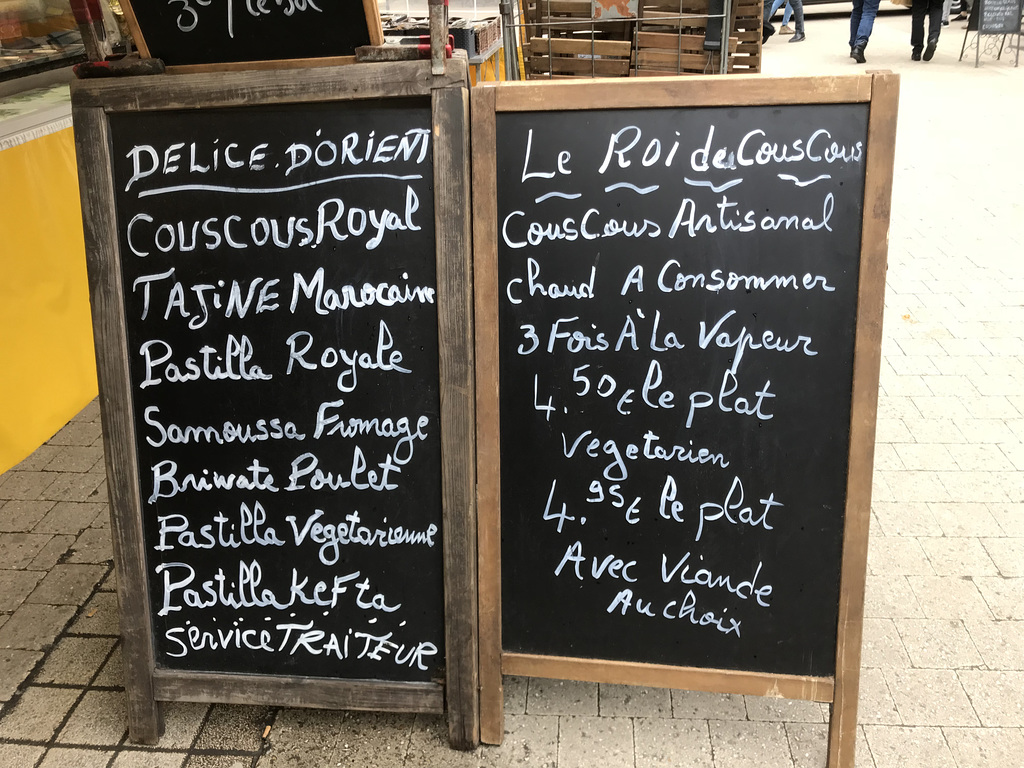 DELICE.D'ORIENT
COUSCOUS.Royal
TAJINE Marocaine
Pastilla Royale
Samoussa Fromage
Briwate Poulet
Pastilla Vegetarienne
Pastilla KEFta
Service TRAITEUR
Le Roi du CousCous
CousCous Artisanal
chaud A Consommer
3 Fois À La Vapeur
4.50€ le plat
vegetarien
4.95€ le plat
Avec Viande
Au choix